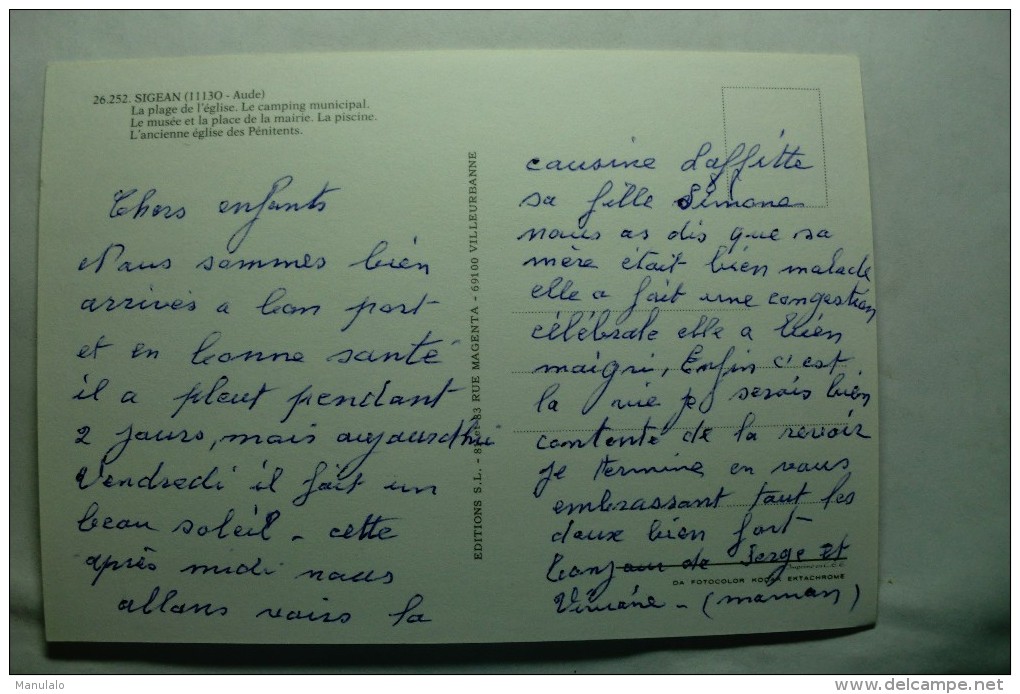 26.252. SIGEAN (11130 - Aude)
La plage de l'église. Le camping municipal.
Le musée et la place de la mairie. La piscine.
L'ancienne église des Pénitents.
Chers enfants
Nous sommes bien
arrivés a bon port
et en bonne santé
il a pleut pendant
2 jours, mais aujourdhui
Vendredi il fait un
beau soleil - cette
après midi nous
allons voirs la
EDITIONS S.L. - 83 RUE MAGENTA - 69100 VILLEURBANNE
cousine Laffitte
sa fille Simone
nous as dis que sa
mère était bien malade
elle a fait une congestion
célébrale elle a bien
maigri, Enfin c'est
la vie je serais bien
contente de la revoir
Je termine en vous
embrassant tout les
deux bien fort
bonjour de Serge et
DA FOTOCOLOR KODAK EKTACHROME
- (maman)
Manulalo
delcampe.net